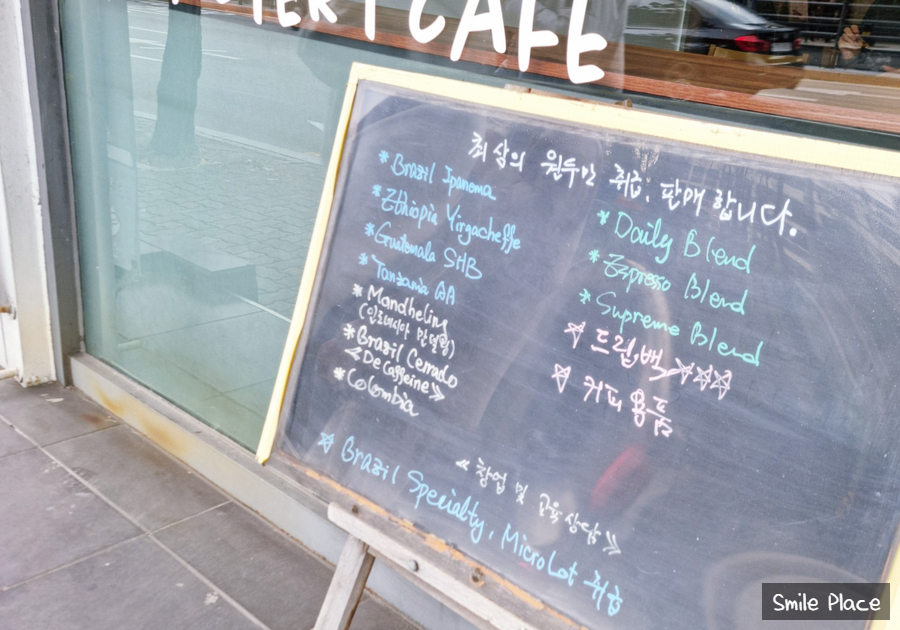 CAFE
최상의 원두만 취급, 판매 합니다.
* Brazil Ipanema
* Ethiopia Yirgacheffe
* Guatemala SHB
* Tanzania AA
* Mandheling
(인도네시아 만델링)
* Brazil Cerrado
<Decaffeine>>
* Colombia
* Daily Blend
* Espresso Blend
* Supreme Blend
☆ 드립백 ☆☆☆
☆ 커피 용품
<< 창업 및 교육 상담 >>
☆ Brazil Specialty, MicroLot 취급
Smile Place